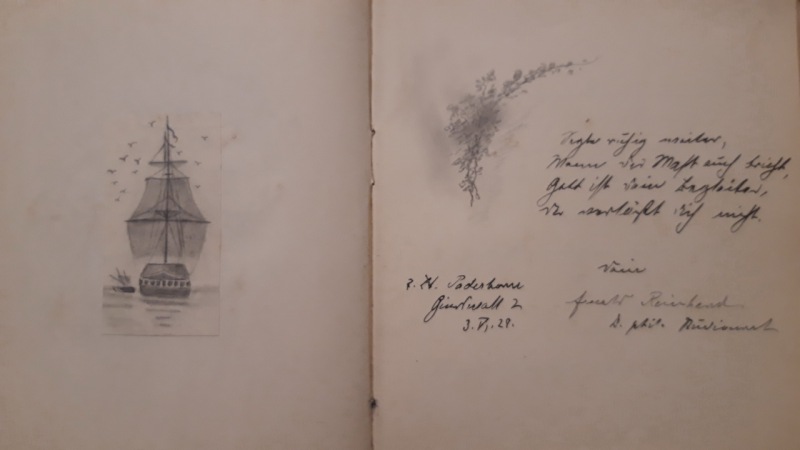 Segle ruhig weiter,
Wenn der Mast auch bricht,
Gott ist dein Begleiter,
der verläßt dich nicht.
Dein
z. Zt. Paderborn
2
3. V. 29.
Reinhard
phil.